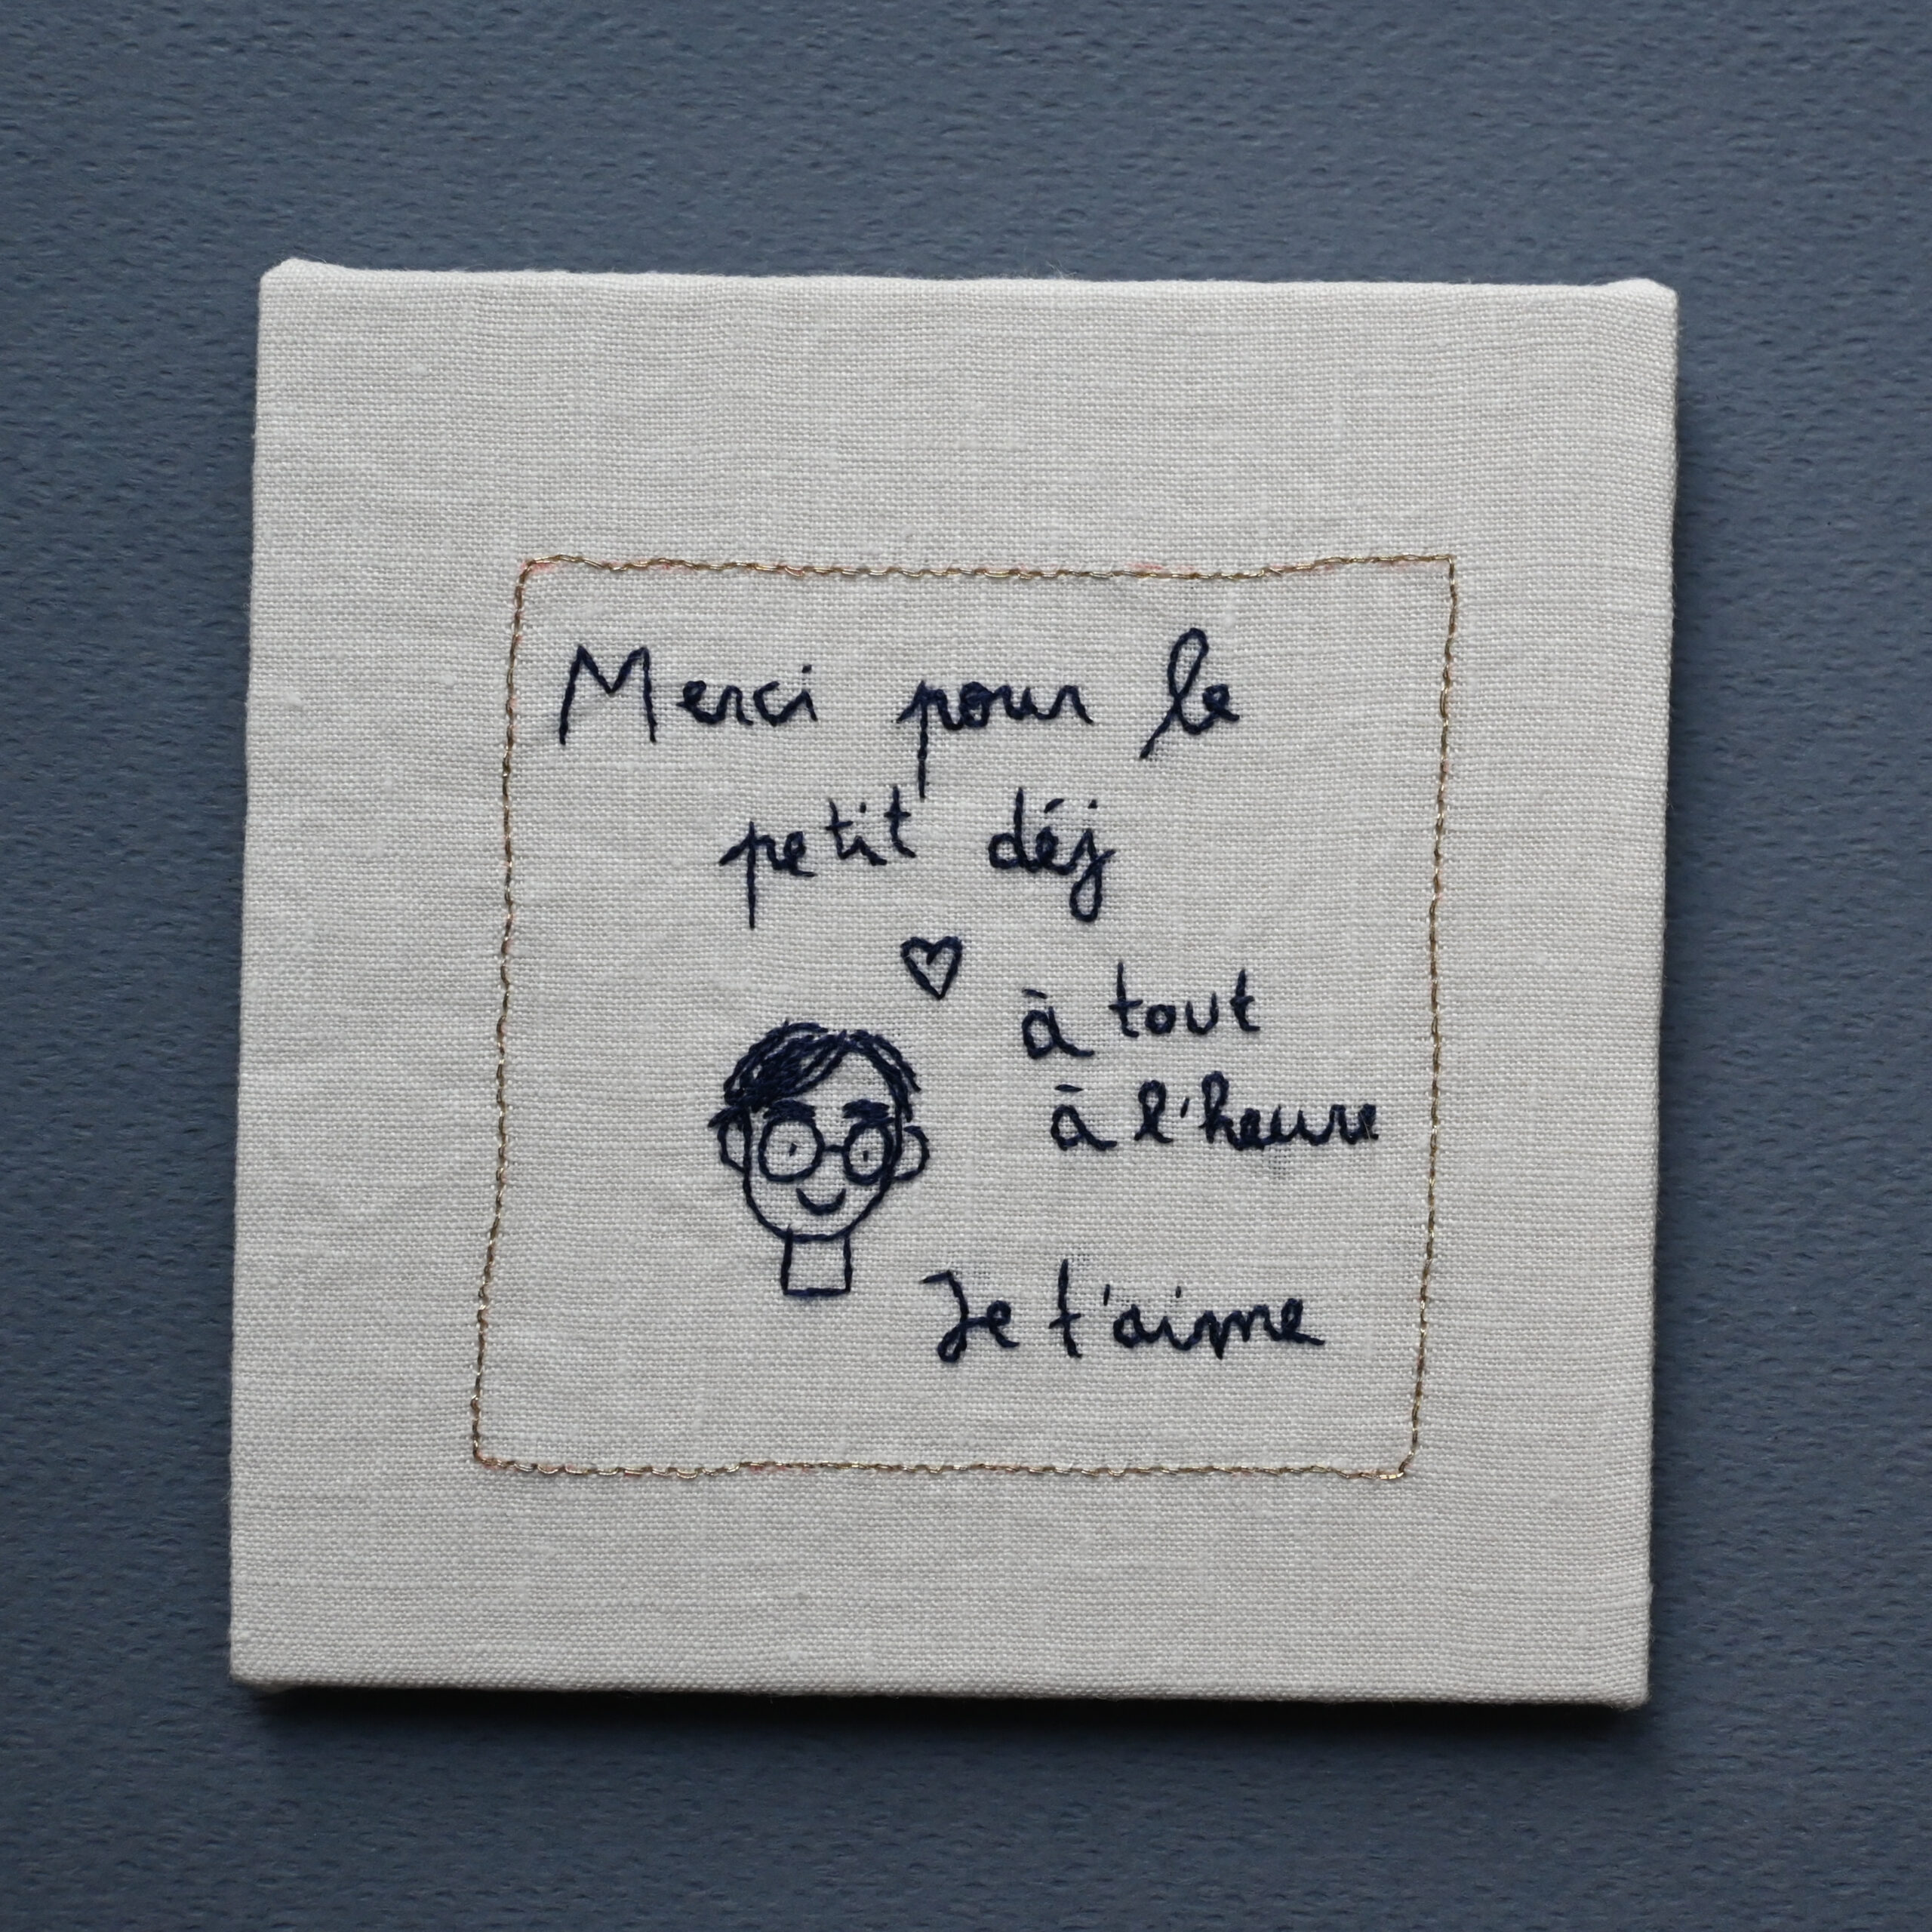 Merci pour le
petit déj
à tout
à l'heure
Je t'aime